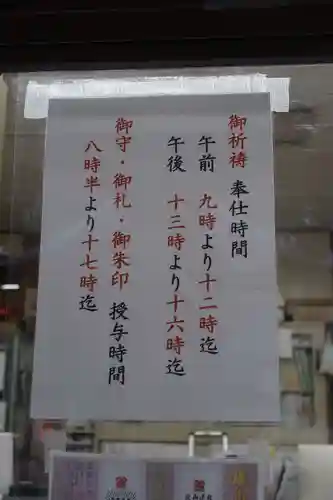 御祈祷 奉仕時間
午前 九時より十二時迄
午後 十三時より十六時迄
御守・御札・御朱印 授与時間
八時半より十七時迄